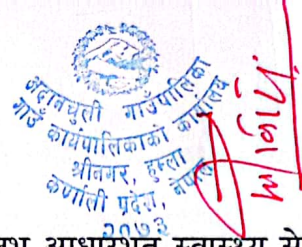 अदानचुली गाउँपालिका
गाउँ कार्यपालिकाको कार्यालय
श्रीनगर, हुम्ला
कर्णाली प्रदेश, नेपाल
२०७३
आधारभूत स्वास्थ्य